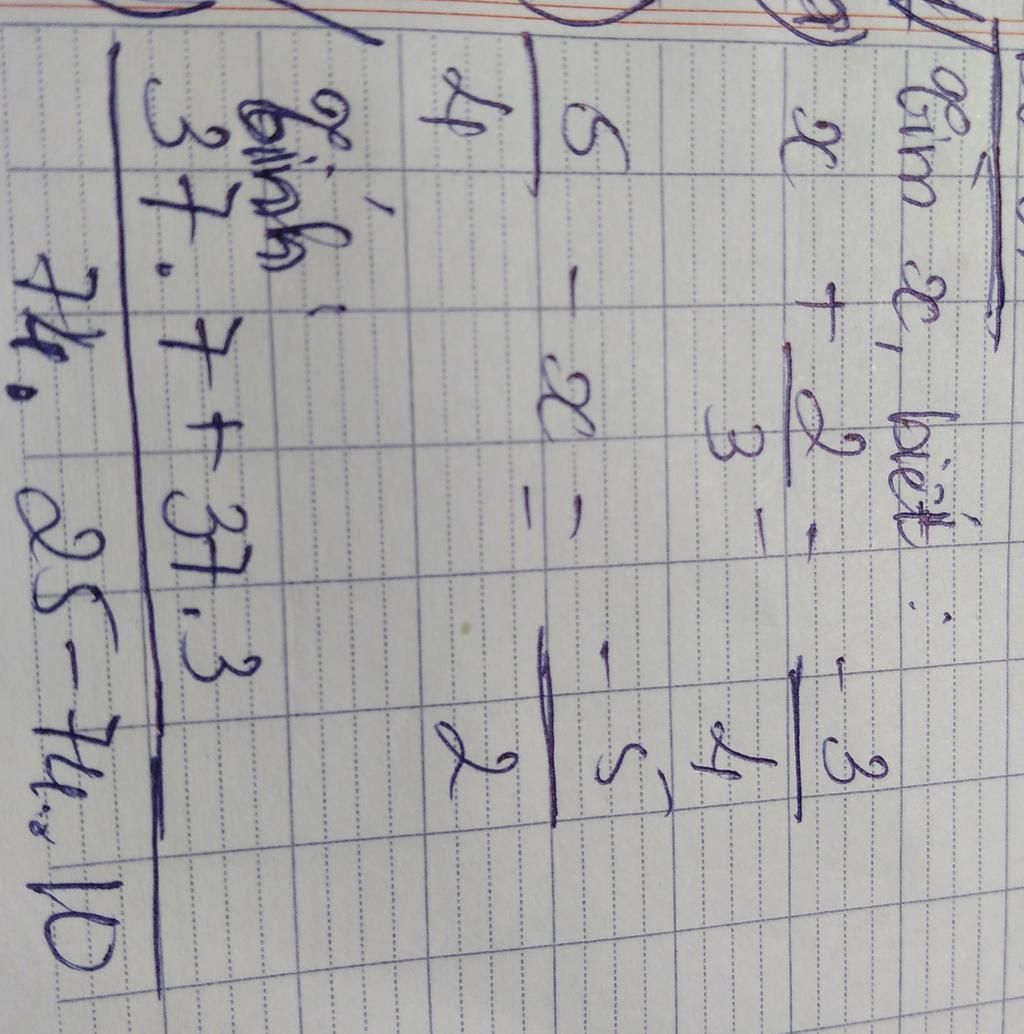 Tìm x, biết :
a) x + 2/3 = -3/4
5/4 - x = -5/2
Tính :
37 . 7 + 37 . 3
74 . 25 - 74 . 10